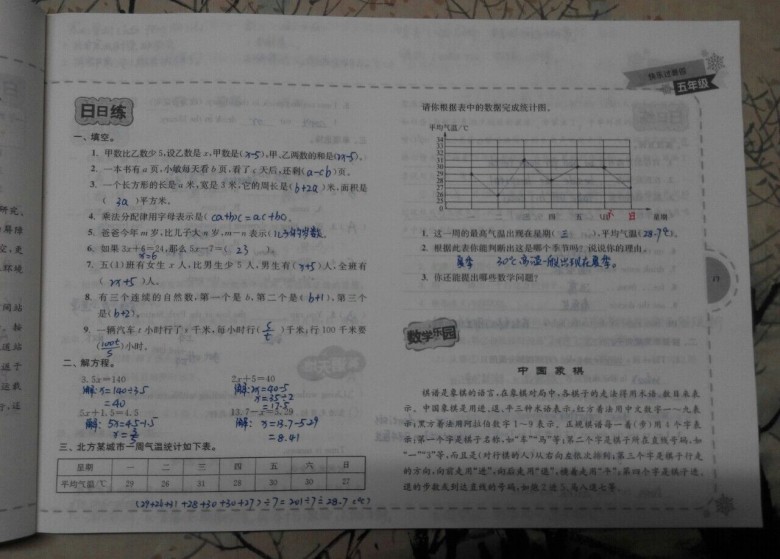 快乐过暑假
五年级
日日练
一、填空。
1. 甲数比乙数少5,设乙数是x,甲数是(x-5),甲、乙两数的和是(2x-5)。
2. 一本书有a页,小敏每天看b页,看了c天后,还剩(a-cb)页。
3. 一个长方形的长是a米,宽是3米,它的周长是(6+2a)米,面积是
(3a)平方米。
4. 乘法分配律用字母表示是(ca+b)c=ac+bc。
5. 爸爸今年m岁,比儿子大n岁,m-n表示(儿子的岁数
6. 如果3x+6=24,那么5x-7=( 23 )。
x=6
7. 五(1)班有女生x人,比男生少5人,男生有(x+5)人,全班有
(2x+5)人。
8. 有三个连续的自然数,第一个是b,第二个是(b+1),第三个
是(b+2)。
9. 一辆汽车t小时行了s千米,每小时行(s/t)千米;行100千米要
(100t/s)小时。
二、解方程。
3.5x=140 2x+5=40
解:x=140÷3.5 解:2x=40-5
=40 x=35÷2
=17.5
5x+1.5=4.5 13.7-x=5.29
解: 5x=4.5-1.5 解:x=13.7-5.29
x=3/5 =8.41
三、北方某城市一周气温统计如下表。
星期 一 二 三 四 五 六 日
平均气温/℃ 29 26 31 28 30 30 27
(29+26+31+28+30+30+27)÷7=201÷7≈28.7(℃)
请你根据表中的数据完成统计图。
平均气温/℃
34
33
32
31
30
29
28
27
26
25
0
一 二 三 四 五 六 日 星期
1. 这一周的最高气温出现在星期( 三 ),平均气温(28.7℃)。
2. 根据此表你能判断出这是哪个季节吗?说说你的理由。
夏季 30℃高温一般出现在夏季。
3. 你还能提出哪些数学问题?
17
数学乐园
中国象棋
棋谱是象棋的语言,在象棋对局中,各棋子的走法得用术语、数目来表
示。中国象棋是用进、退、平三种术语表示,红方着法用中文数字一~九表
示,黑方着法用阿拉伯数字1~9表示。正规棋谱每一着(步)用4个字表
示:第一个字是棋子名称,如“车”“马”等;第二个字是棋子所在直线号码,如
“一”“3”等,而且是(对行棋的人)从右向左依次排列;第三个字是棋子行走
的方向,向前走用“进”,向后走用“退”,横着走用“平”;第四个字是棋子进、
退的步数或到达直线的号码,如炮2进5、马八进七等。